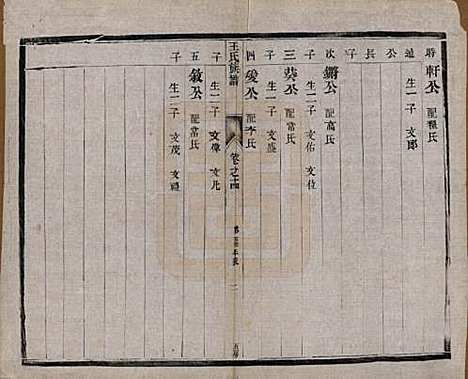 聘軒公 配程氏
通 生一子 文郎
公
長
子
次鏘公 配高氏
子 生二子 文佑 文位
三葵公 配常氏
子 生一子 文盛
王氏族譜
卷之十四
二
五房
四愛公 配李氏
子
五敘公 配常氏
子 生二子 文偉 文凡
子 生二子 文茂 文禮